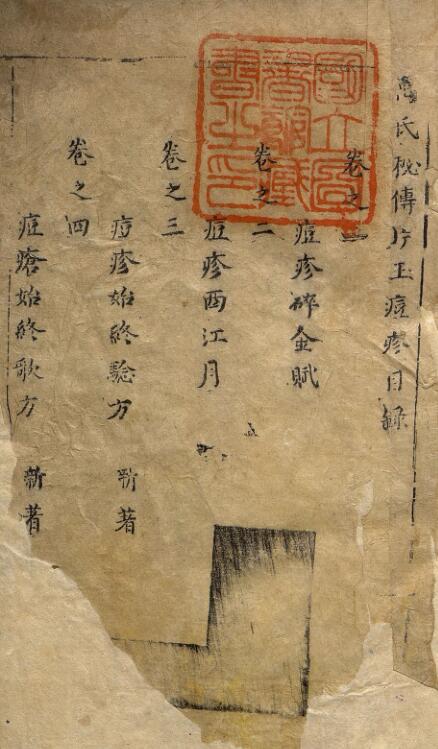 萬氏秘傳片玉痘疹目錄
卷之一
痘疹碎金賦
卷之二
痘疹西江月
卷之三
痘疹始終驗方 新著
卷之四
痘瘡始終歌方 新著
國立圖書館藏書之印